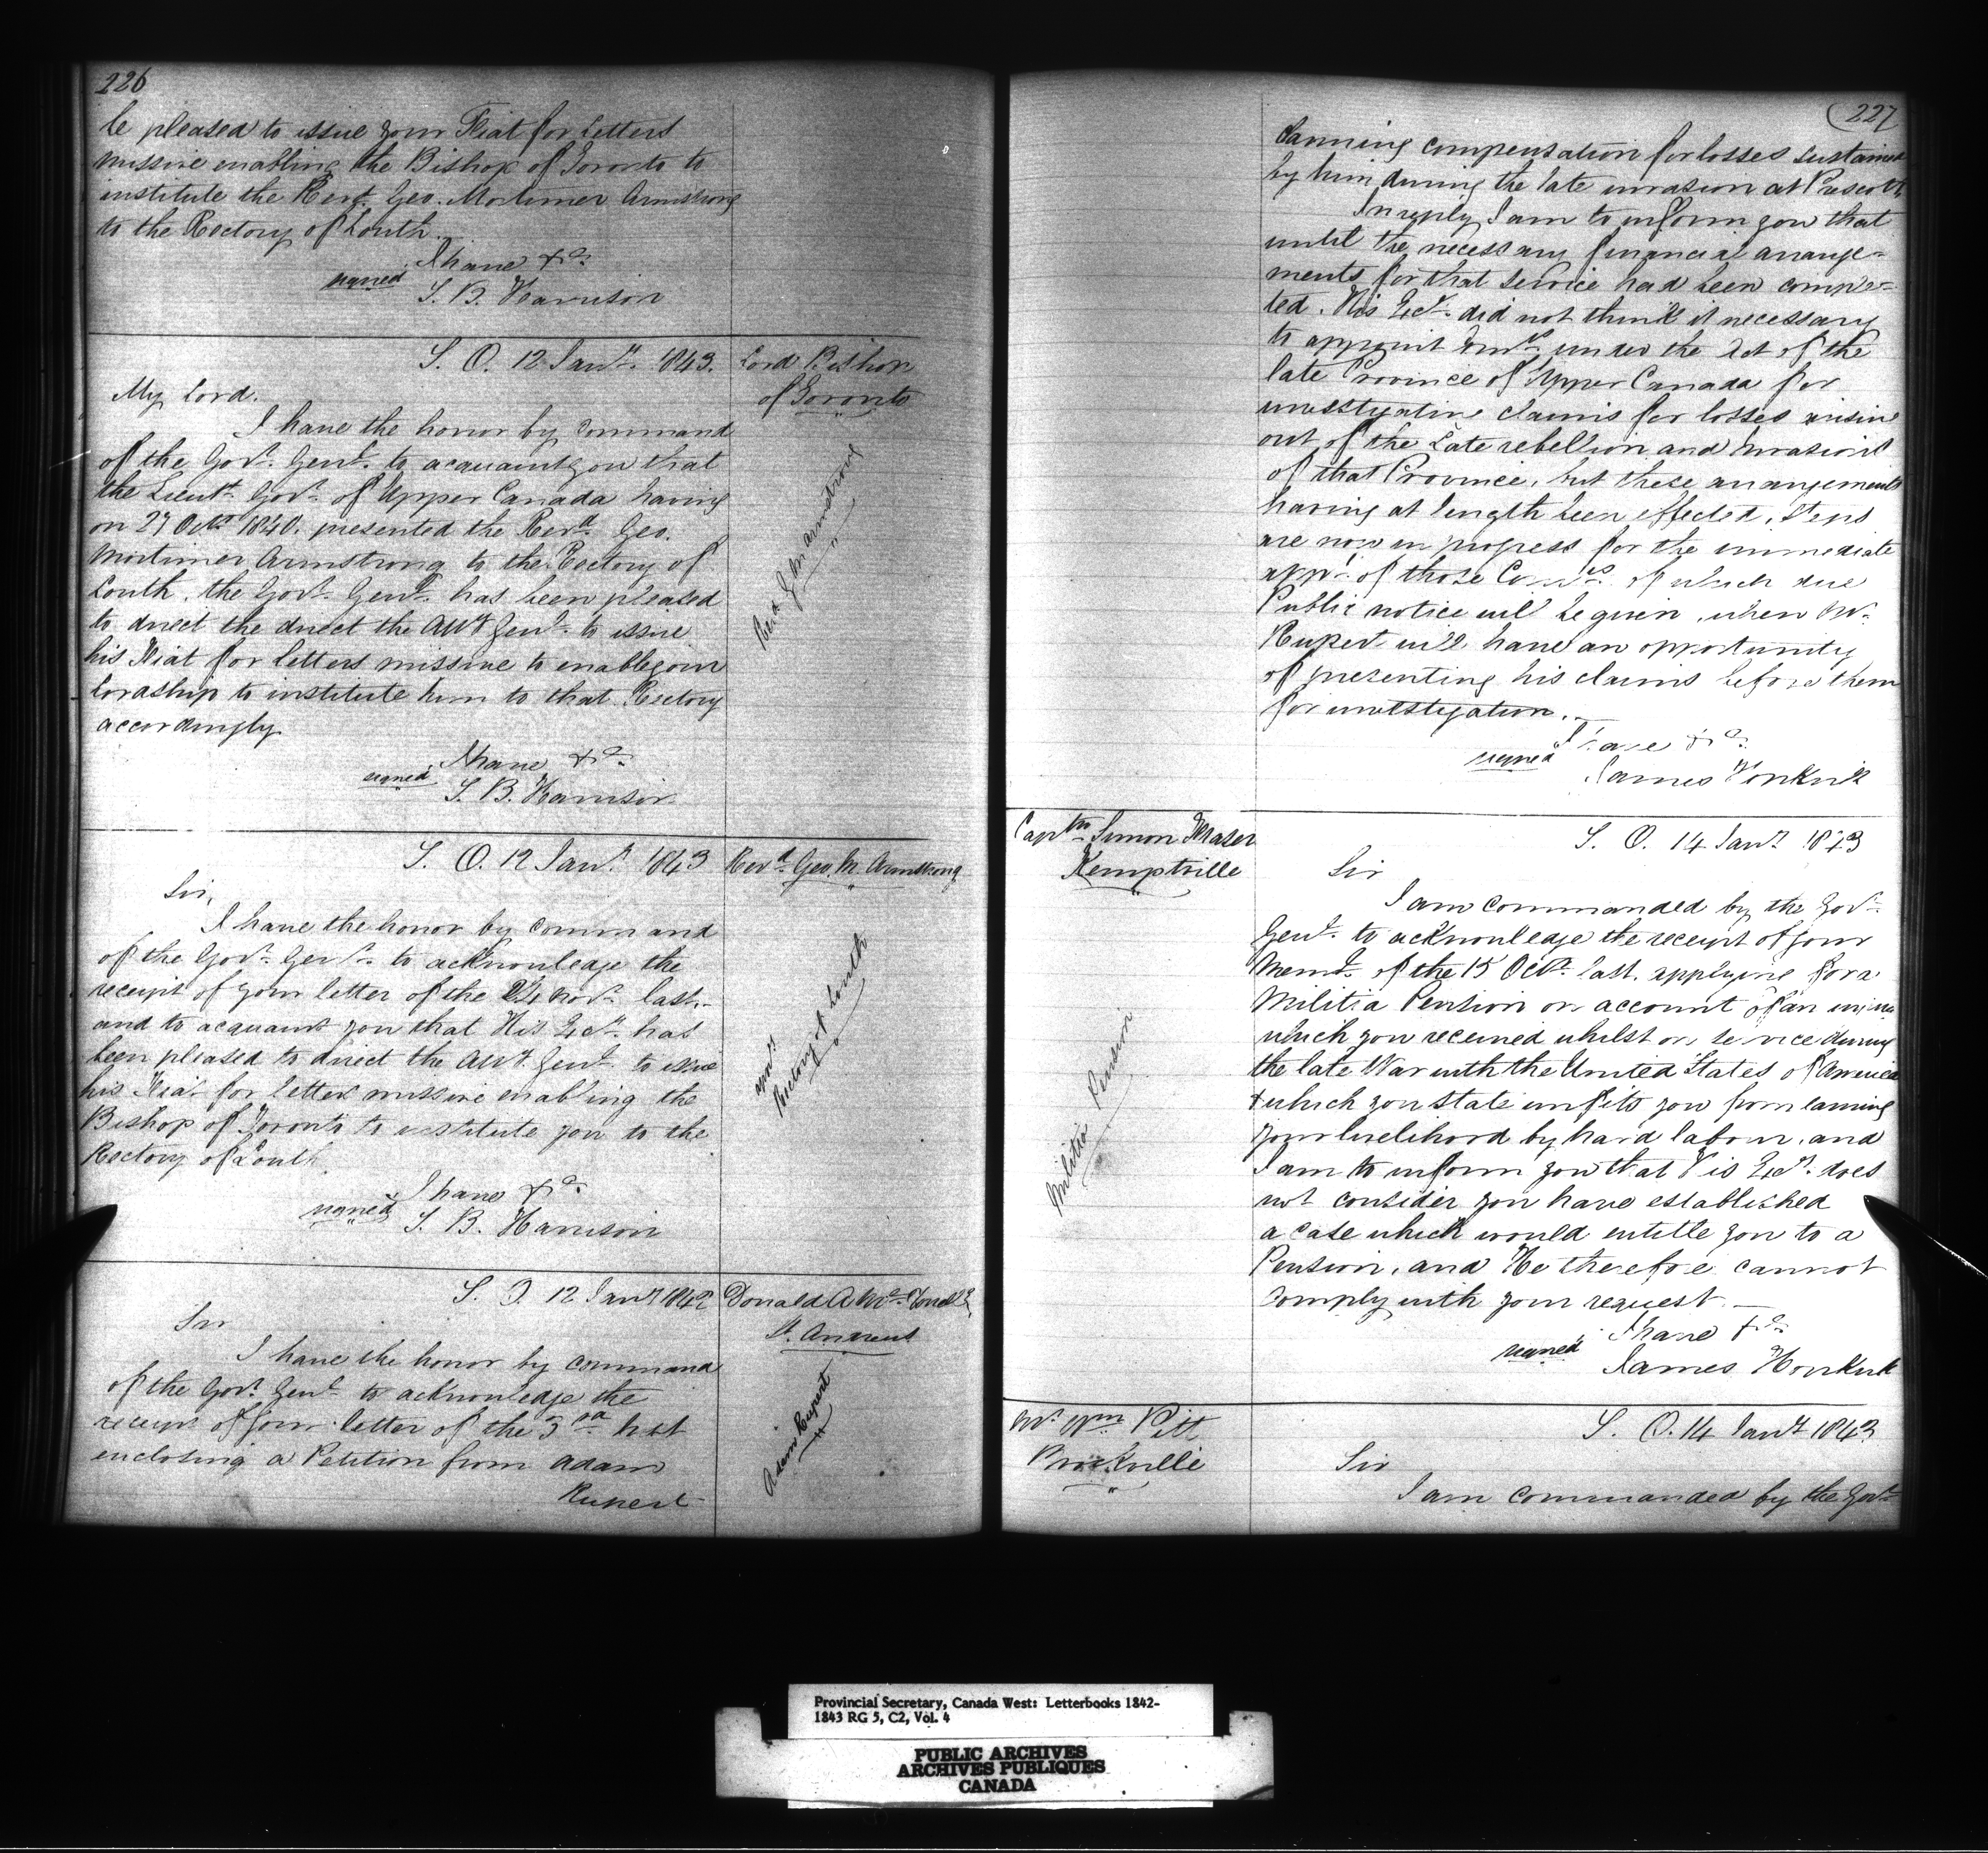 226
be pleased to issue your Fiat for letters
missive enabling the Bishop of Toronto to
institute the Revd. Geo. Mortimer Armstrong
to the Rectory of Louth.
I have &c.
signed S. B. Harrison
S. O. 12 Jany. 1843.
Lord Bishop
of Toronto
My Lord.
I have the honor by command
of the Govr. Genl. to acquaint you that
the Lieut. Govr. of Upper Canada having
on 27 Octr 1840. presented the Revd. Geo.
Mortimer Armstrong to the Rectory of
Louth, the Govr. Genl. has been pleased
to direct the direct the Atty Genl. to issue
his Fiat for letters missive to enable your
Lordship to institute him to that Rectory
accordingly
Revd. G. M. Armstrong
I have &c.
signed S. B. Harrison
S. O. 12 Jany. 1843
Revd. Geo. M. Armstrong
Sir,
I have the honor by command
of the Govr. Genl. to acknowledge the
receipt of your letter of the 24 Novr. last.
and to acquaint you that His Exy. has
been pleased to direct the Atty. Genl. to issue
his Fiat for letters missive enabling the
Bishop of Toronto to institute you to the
Rectory of Louth.
appt.
Rectory of Louth
I have &c.
signed S. B. Harrison
S. O. 12 Jany 1842
Donald A.
St. Andrews
Sir
I have the honor by command
of the Govr. Genl. to acknowledge the
receipt of your letter of the 3rd. Inst
enclosing a Petition from Adam
Rupert
Adam Rupert
227
claiming compensation for losses sustained
by him during the late invasion at Prescott.
In reply I am to inform you that
until the necessary financial arrange-
ments for that service had been comple-
ted. His Exy. did not think it necessary
to appoint Comrs. under the Act of the
late Province of Upper Canada for
investigating claims for losses arising
out of the late rebellion and invasions
of that Province, but these arrangements
having at length been effected, steps
are now in progress for the immediate
appt. of those Comrs. of which due
Public notice will be given, when Mr.
Rupert will have an opportunity
of presenting his claims before them
for investigation.
I have &c.
signed James Hopkirk
Captn. Simon Fraser
Kemptville
S. O. 14 Jany 1843
Sir
I am commanded by the Govr.
Genl. to acknowledge the receipt of your
Meml. of the 15 Octr. last, applying for a
Militia Pension on account of an injury
which you received whilst on service during
the late War with the United States of America
& which you state unfits you from earning
your livelihood by hard labour, and
I am to inform you that His Exy. does
not consider you have established
a case which would entitle you to a
Pension, and He therefore cannot
comply with your request.
Militia Pension
I have &c.
signed James Hopkirk
Mr. Wm Pitt
Brockville
S. O. 14 Jany 1843
Sir
I am commanded by the Govr.
Provincial Secretary, Canada West: Letterbooks 1842-
1843 RG 5, C2, Vol. 4
PUBLIC ARCHIVES
ARCHIVES PUBLIQUES
CANADA